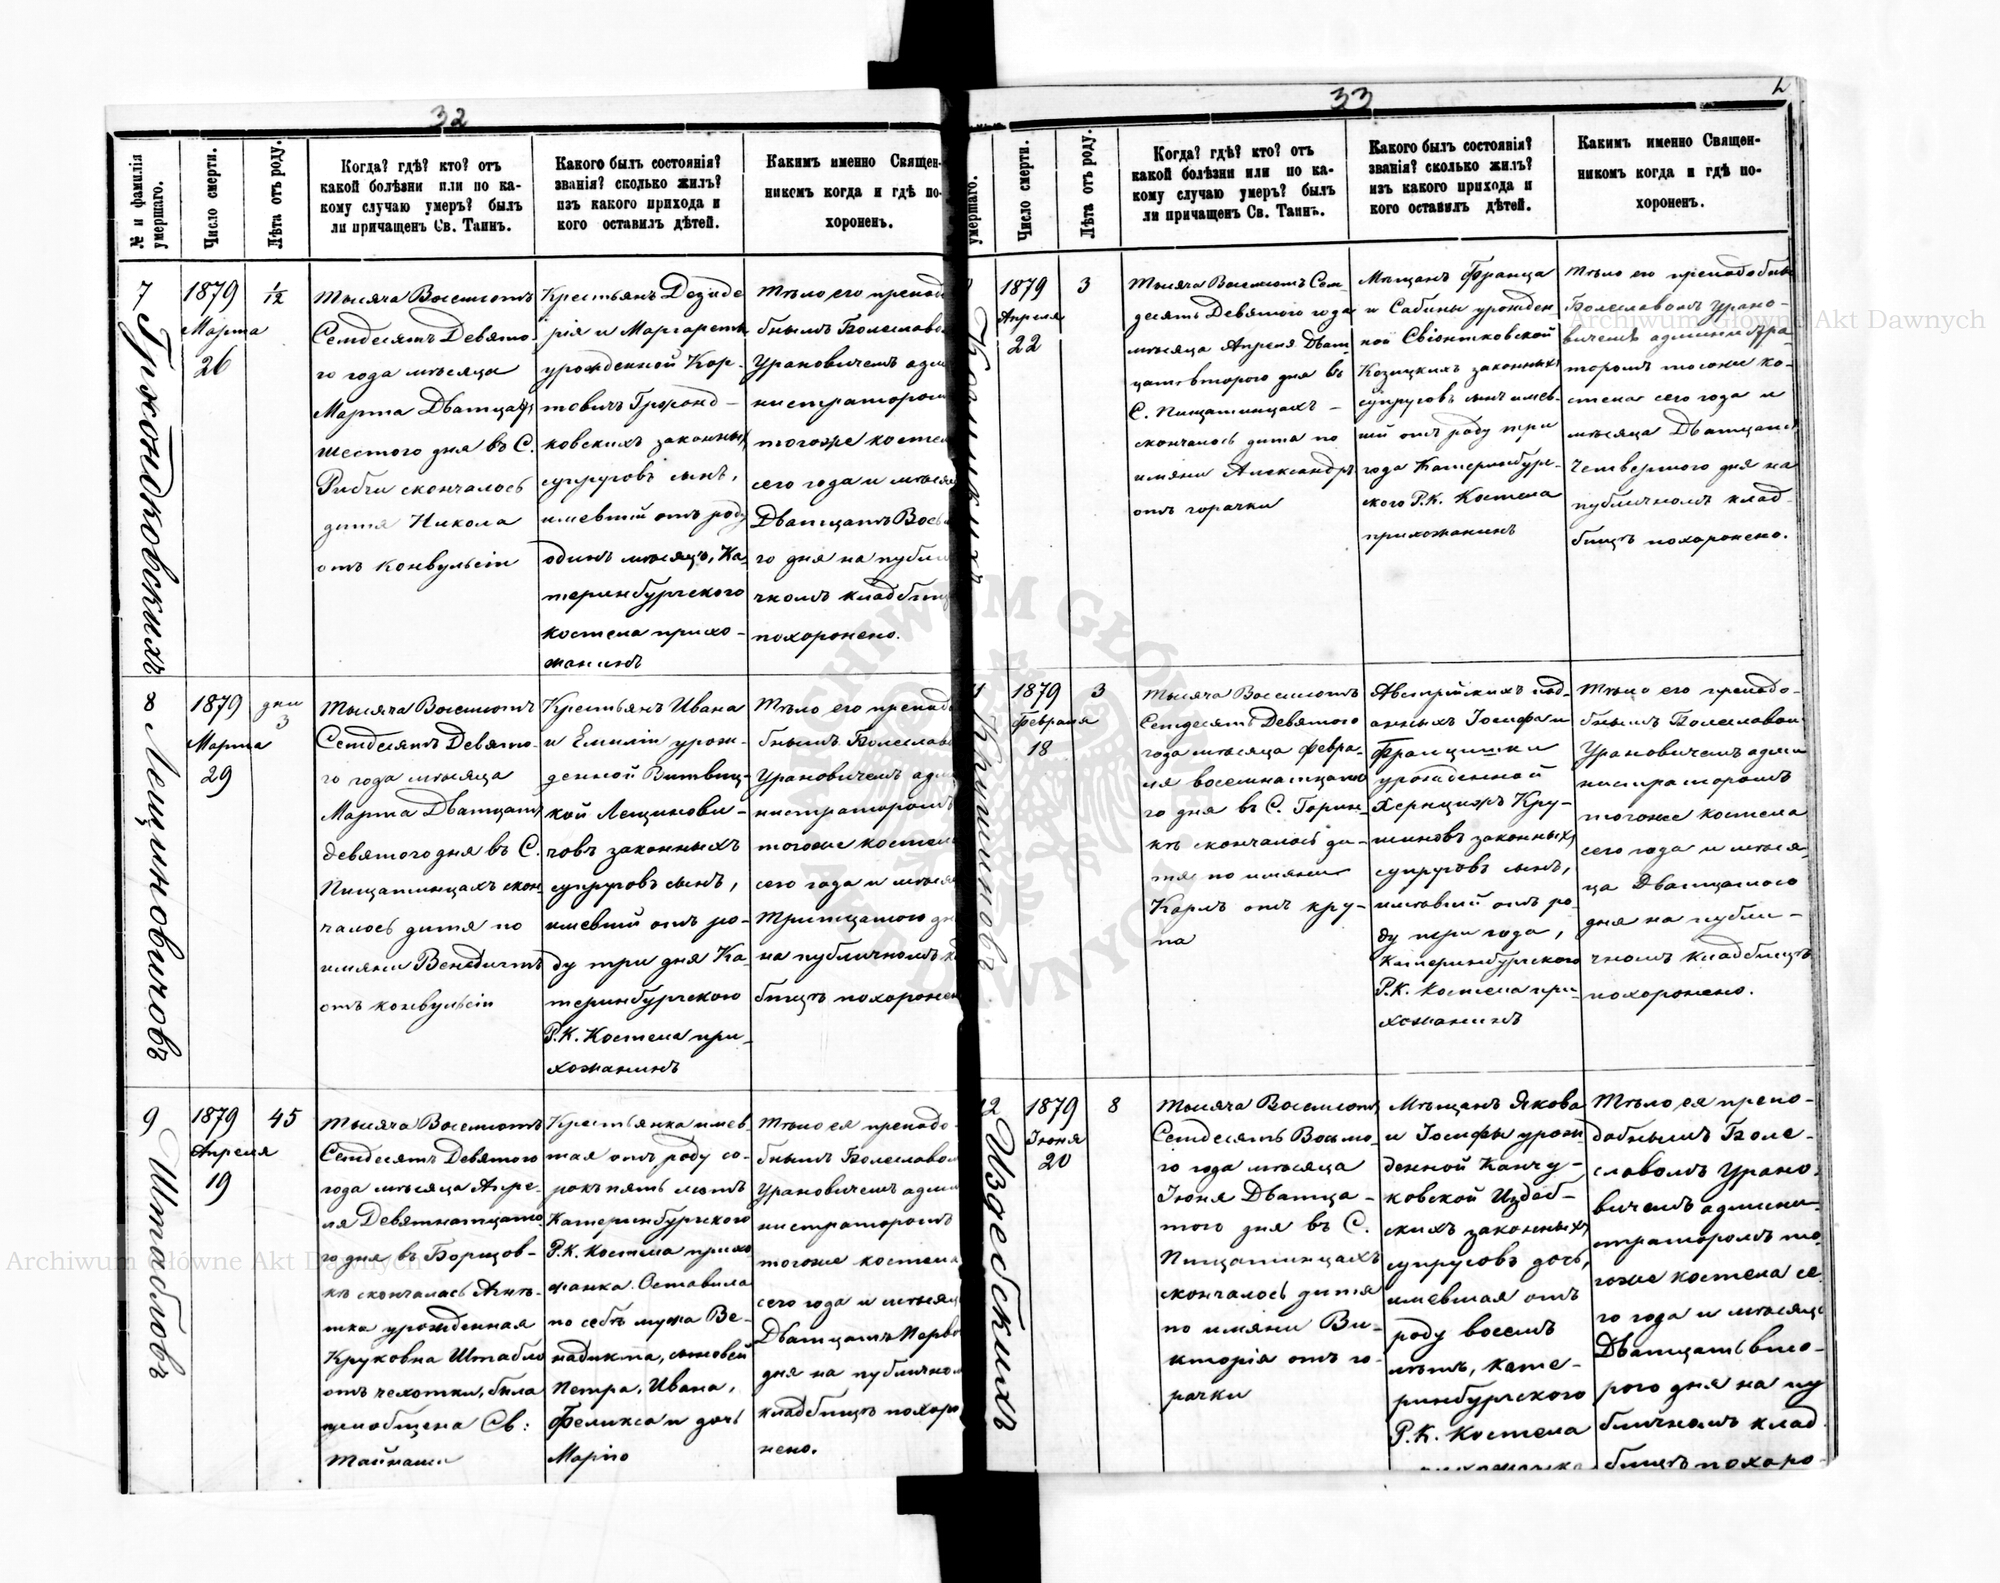 32
№ и фамилія
умершаго.
Число смерти.
Лѣта отъ роду.
Когда? гдѣ? кто? отъ
какой болѣзни или по ка-
кому случаю умеръ? былъ
ли причащенъ Св. Таинъ.
Какого былъ состоянія?
званія? сколько жилъ?
изъ какого прихода и
кого оставилъ дѣтей.
Каkимъ именно Священ-
никомъ когда и гдѣ по-
хороненъ.
7
1879
Марта
26
1/12
Тысяча Восемсотъ
Семдесятъ Девято-
го года мѣсяца
Марта Двацать
шестого дня въ С.
скончалось
дитя Никола
отъ конвульсіи
Крестьянъ Дезиде
рія и Маргареты
урожденной Кор-
товичъ
ковскихъ законных
супруговъ сынъ,
имевшій отъ роду
одинъ мѣсяцъ, Ка-
теринбургского
костела прихо-
жанинъ
Тѣло его преподо
бнымъ Болеславо
Урановичемъ адм
нистратором
тогоже костел
сего года и мѣсяц
Двацать Вось
го дня на публи
чномъ кладбищ
похоронено.
8 Лещиновичовъ
1879
Марта
29
дни
3
Тысяча Восемсотъ
Семдесятъ Девято-
го года мѣсяца
Марта Двацать
девятого дня въ С.
Пищатинцахъ скон-
чалось дитя по
имяни Венедиктъ
отъ конвульсіи
Крестьянъ Ивана
и Емиліи урож-
денной Витвиц-
кой Лещинови-
човъ законныхъ
супруговъ сынъ,
имевшій отъ ро-
ду три дня Ка-
теринбургского
Р.К. Костела при-
хожанинъ
Тѣло его преподо
бнымъ Болеславо
Урановичемъ адм
нистраторомъ
тогоже костел
сего года и мѣсяц
Тритцатого дн
на публичномъ к
бищѣ похоронен
9 Штабловъ
1879
Апреля
19
45
Тысяча Восемсотъ
Семдесятъ Девятого
года мѣсяца Апре-
ля Девятнатцато-
го дня въ Борщов-
кѣ скончалась Анѣ-
тка урожденная
Круковна Штабло
отъ чехотки, была
приобщена Св:
Тайнами
Крестьянка имев-
шая отъ роду со-
рокъ пять лѣтъ
Катеринбургского
Р.К. Костела прихо-
жанка. Оставила
по себѣ мужа Ве-
надикта, сыновей
Петра, Ивана,
Феликса и дочь
Марію
Тѣло ея преподо-
бнымъ Болеславом
Урановичемъ адми
нистраторомъ
тогоже костела
сего года и мѣсяц
Двацать Перво
дня на публичном
кладбищѣ похоро
нено.
33
умершаго.
Число смерти.
Лѣта отъ роду.
Когда? гдѣ? кто? отъ
какой болѣзни или по ка-
кому случаю умеръ? былъ
ли причащенъ Св. Таинъ.
Какого былъ состоянія?
званія? сколько жилъ?
изъ какого прихода и
кого оставилъ дѣтей.
Какимъ именно Священ-
никомъ когда и гдѣ по-
хороненъ.
1879
Апреля
22
3
Тысяча Восемсотъ Сем-
десять Девятого года
мѣсяца Апреля Двац-
цатьвторого дня въ
С. Пищатинцахъ -
скончалось дитя по
имяни Александръ
отъ горачки
Мѣщанъ Франца
и Сабины урожден
ной Свіонтковской
Козицкихъ законных
супруговъ сынъ имев-
шій отъ роду три
года Катеринбур-
ского Р.К. Костела
прихожанинъ
Тѣло его преподобны
Болеславомъ Урано-
вичемъ администра-
торомъ тогоже ко-
стела сего года и
мѣсяца Двацать
Четвертого дня на
публичномъ клад-
бищѣ похоронено.
11 Крушиновъ
1879
Февраля
18
3
Тысяча Восемсотъ
Семдесятъ Девятого
года мѣсяца Февра-
ля восемнатцато-
го дня въ С. Горин-
кѣ скончалось ди-
тя по имяни
Карлъ отъ кру-
па
Австрійскихъ под-
анныхъ Іосифа и
Францишки
урожденной
Кру-
шиновъ законных
супруговъ сынъ,
имѣвшій отъ ро-
ду три года,
Катеринбургского
Р.К. Костела при-
хожанинъ
Тѣло его преподо-
бнымъ Болеславом
Урановичемъ адми
нистраторомъ
тогоже костела
сего года и мѣся-
ца Двацатого
дня на публи-
чномъ кладбищѣ
похоронено.
12 Издебскихъ
1879
Іюня
20
8
Тысяча Восемсотъ
Семдесятъ Восмо-
го года мѣсяца
Іюня Дватца-
того дня въ С.
Пищатинцахъ
скончалось дитя
по имяни Ви-
кторія отъ го-
рачки
Мѣщанъ Якова
и Іосифы урож-
денной Канчу-
ковской Издеб-
скихъ законных
супруговъ дочь,
имевшая отъ
роду восемъ
лѣтъ, Кате-
ринбургского
Р.К. Костела
Тѣло ея препо-
добнымъ Боле-
славомъ Урано-
вичемъ админи-
страторомъ то-
гоже костела се-
го года и мѣсяца
Двацать вто-
рого дня на пу
бличномъ клад
бищѣ похоро-
Archiwum Główne Akt Dawnych
Archiwum Główne Akt Dawnych
ARCHIWUM GŁÓWNE AKT DAWNYCH